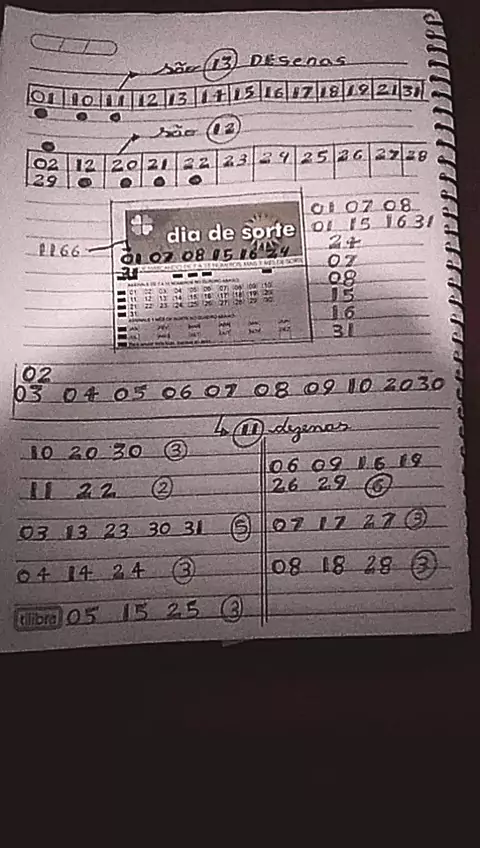 são 13 DESENAS
01 10 11 12 13 14 15 16 17 18 19 21 31
são 12
02 12 20 21 22 23 24 25 26 27 28
29
dia de sorte
1166
01 07 08 15 16 24
31
01 07 08
01 15 16 31
24
07
08
15
16
31
02
03 04 05 06 07 08 09 10 20 30
11 dezenas
10 20 30 3
11 22 2
03 13 23 30 31 5
04 14 24 3
05 15 25 3
06 09 16 19
26 29 6
07 17 27 3
08 18 28 3
tilibra